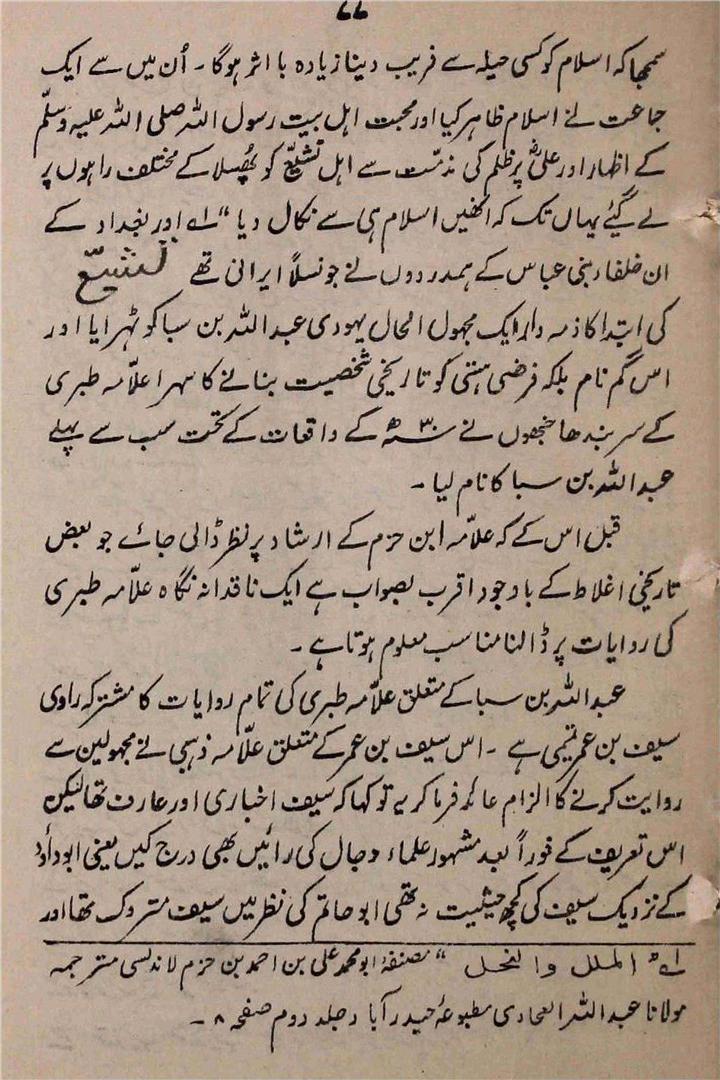 ۷۷
سمجھا کہ اسلام کو کسی حیلہ سے فریب دینا زیادہ با اثر ہوگا۔ اُن میں سے ایک
جماعت نے اسلام ظاہر کیا اور محبت اہل بیت رسول اللہ صلی اللہ علیہ وسلّم
کے اظہار اور علیؓ پر ظلم کی مذمّت سے اہل تشیّع کو پھُسلا کے مختلف راہوں پر
لے گیٔے یہاں تک کہ انھیں اسلام ہی سے نکال دیا “ لہ اور بغداد کے
ان خلفاء بنی عباس کے ہمدردوں نے جو نسلاً ایرانی تھے تشیّع
کی ابتدا کا ذمہ دار ایک مجہول الحال یہودی عبداللہ بن سبا کو ٹہرایا اور
اس گم نام بلکہ فرضی ہستی کو تاریخی شخصیت بنانے کا سہرا علاّمہ طبری
کے سر بندھا جنھوں نے ۳۰ھ کے واقعات کے تحت سب سے پہلے
عبداللہ بن سبا کا نام لیا۔
قبل اس کے کہ علاّمہ ابن حزم کے ارشاد پر نظر ڈالی جائے جو بعض
تاریخی اغلاط کے باوجود اقرب بصواب ہے ایک ناقدانہ نگاہ علاّمہ طبری
کی روایات پر ڈالنا مناسب معلوم ہوتا ہے۔
عبداللہ بن سبا کے متعلق علاّمہ طبری کی تمام روایات کا مشترکہ راوی
سیف بن عمر تمیمی ہے ۔ اس سیف بن عمر کے متعلق علاّمہ ذہبی نے مجہولین سے
روایت کرنے کا الزام عائد فرما کر یہ تو کہا کہ سیف اخباری اور عارف تھا لیکن
اس تعریف کے فوراً بعد مشہور علماء رجال کی رائیں بھی درج کیں یعنی ابو داؤد
کے نزدیک سیف کی کچھ حیثیت نہ تھی ابو حاتم کی نظر میں سیف متروک تھا اور
لہ ” الملل والنحل “ مصنفۂ ابو محمد علی بن احمد بن حزم لاندلسی مترجمہ
مولانا عبداللہ العمادی مطبوعۂ حیدرآباد جلد دوم صفحہ ۸ ۔